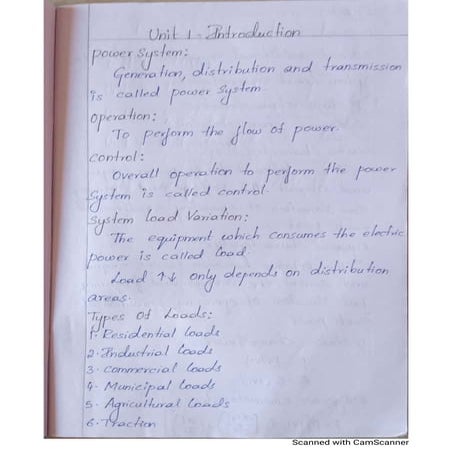 Unit 1 - Introduction
power System:
Generation, distribution and transmission
is called power system.
operation:
To perform the flow of power.
control:
Overall operation to perform the power
System is called control.
System load Variation:
The equipment which consumes the electric
power is called load.
Load ↑↓ only depends on distribution
areas.
Types Of Loads:
1. Residential loads
2. Industrial loads
3. commercial loads
4. Municipal loads
5. Agricultural loads
6. Traction
Scanned with CamScanner